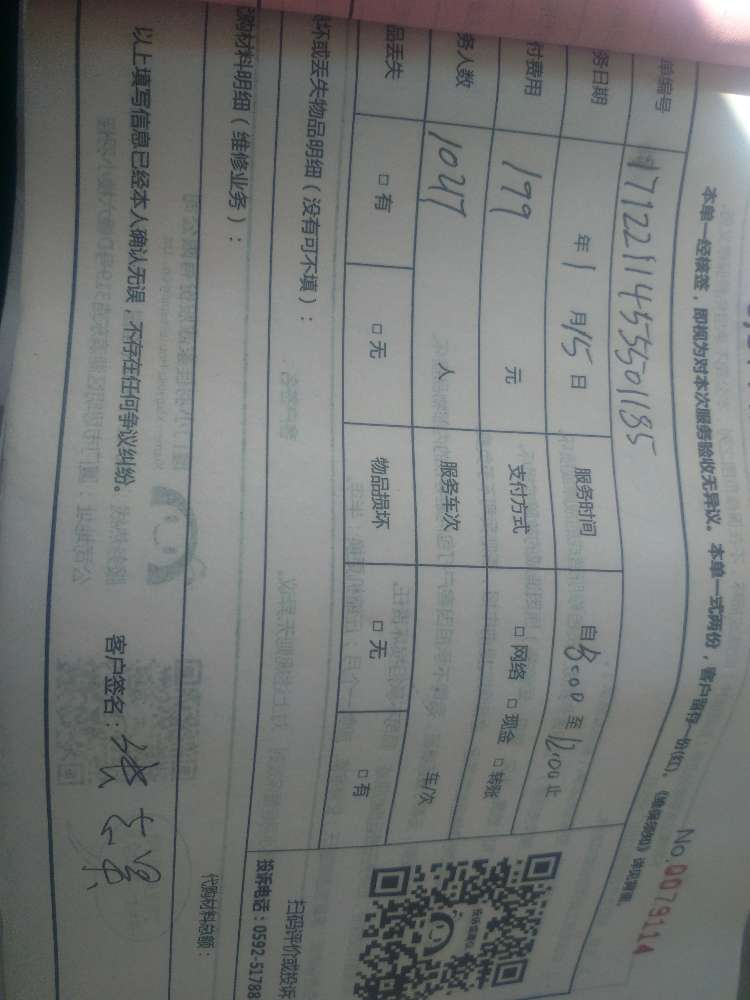 No.0079114
本单一经核签，即视为对本次服务验收无异议。本单一式两份，客户留存一份(红)。《维保须知》详见背面。
单编号 1712211455501185
务日期 年1月15日 服务时间 自8:00至12:00止
付费用 199 元 支付方式 □网络 □现金 □转账
务人数 人 服务车次 车/次
品丢失 □有 □无 物品损坏 □无 □有
坏或丢失物品明细（没有可不填）：
扫码评价或投诉
投诉电话：0592-51788
购材料明细（维修业务）：
代购材料总额：
以上填写信息已经本人确认无误，不存在任何争议纠纷。
客户签名：